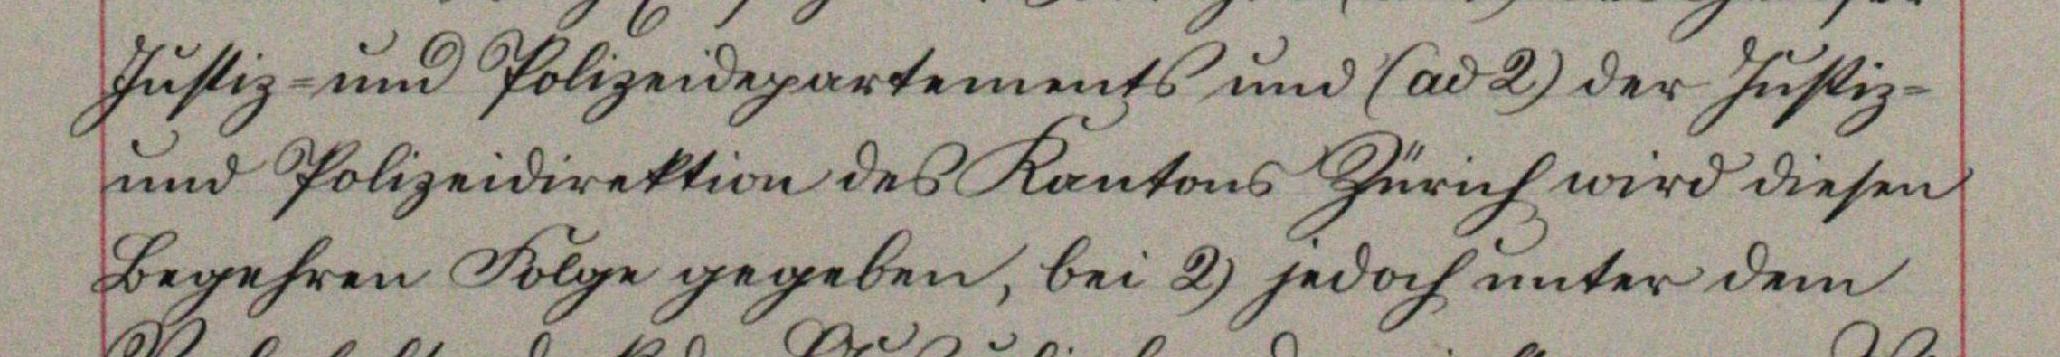 Justiz- und Polizeidepartements und (ad 2) der Justiz-
und Polizeidirektion des Kantons Zürich wird diesen
Begehren Folge gegeben, bei 2) jedoch unter dem